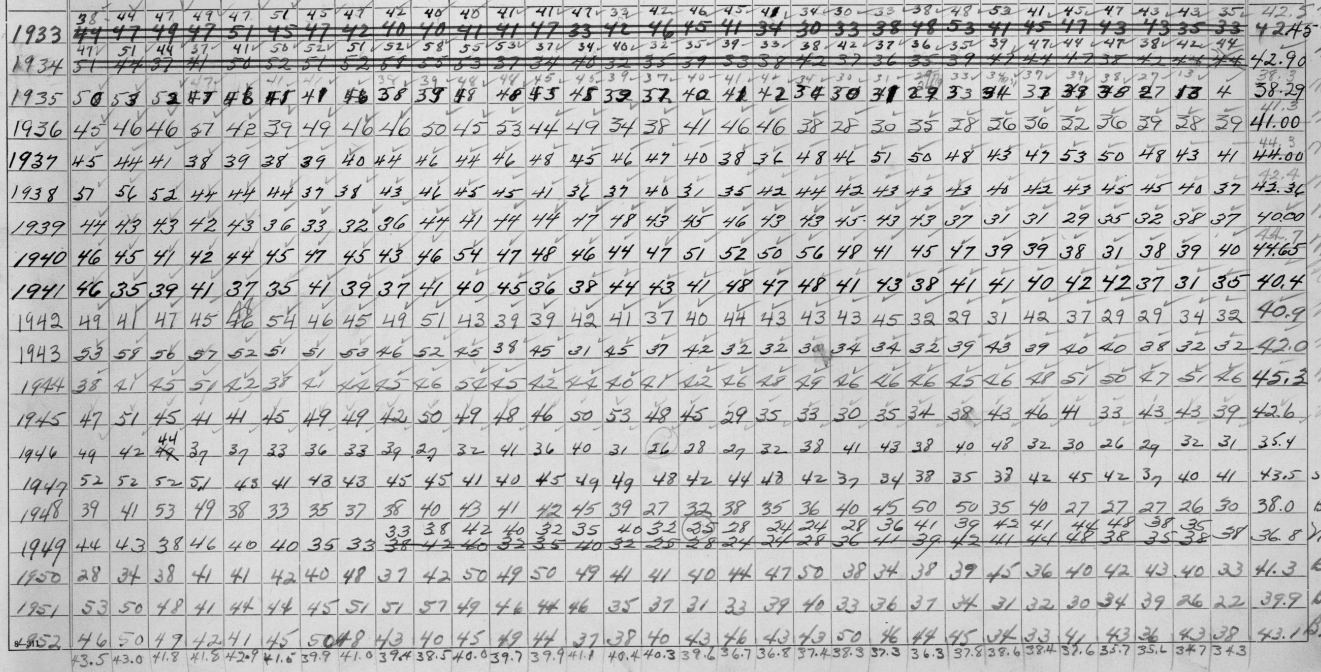 38 44 47 49 47 51 45 47 42 40 40 41 41 47 33 42 46 45 41 34 30 33 38 48 53 41 45 47 43 43 35 42.5
1933
47 51 44 37 41 50 52 51 52 58 55 53 37 34 40 32 35 39 33 38 42 37 36 35 39 47 44 47 38 42 44
1934 42.90
38.3
1935 50 53 52 47 46 41 41 46 38 39 48 48 45 45 39 37 40 41 42 34 30 31 29 33 34 37 39 38 27 13 4 38.29
41.3
1936 45 46 46 37 42 39 49 46 46 50 45 53 44 49 34 38 41 46 46 38 28 30 35 28 26 36 32 36 39 28 39 41.00
44.3
1937 45 44 41 38 39 38 39 40 44 46 44 46 48 45 46 47 40 38 36 48 46 51 50 48 43 47 53 50 48 43 41 44.00
42.4
1938 57 56 52 44 44 44 37 38 43 46 45 45 41 36 37 40 31 35 42 44 42 43 43 43 40 42 43 45 45 40 37 42.36
1939 44 43 43 42 43 36 33 32 36 44 41 44 44 47 48 43 45 46 43 43 45 43 43 37 31 31 29 35 32 38 37 40.00
44.7
1940 46 45 41 42 44 45 47 45 43 46 54 47 48 46 44 47 51 52 50 56 48 41 45 47 39 39 38 31 38 39 40 44.65
1941 46 35 39 41 37 35 41 39 37 41 40 45 36 38 44 43 41 48 47 48 41 43 38 41 41 40 42 42 37 31 35 40.4
1942 49 41 47 45 46 54 46 45 49 51 43 39 39 42 41 37 40 44 43 43 43 45 32 29 31 42 37 29 29 34 32 40.9
1943 53 58 56 57 52 51 51 53 46 52 45 38 45 31 45 37 42 32 32 34 34 32 39 43 39 40 40 38 32 32 42.0
1944 38 41 45 51 42 38 41 44 45 46 54 45 42 44 40 41 42 46 48 49 46 46 46 45 46 48 51 50 47 51 46 45.3
1945 47 51 45 41 41 45 49 49 42 50 49 48 46 50 53 48 45 29 35 33 30 35 34 38 43 46 41 33 43 43 39 42.6
44
1946 49 42 49 37 37 33 36 33 39 27 32 41 36 40 31 26 28 27 32 38 41 43 38 40 48 32 30 26 29 32 31 35.4
1947 52 52 52 51 43 41 43 43 45 45 41 40 45 49 49 48 42 44 48 42 37 34 38 35 38 42 45 42 37 40 41 43.5
1948 39 41 53 49 38 33 35 37 38 40 43 41 42 45 39 27 32 38 35 36 40 45 50 50 35 40 27 27 27 26 30 38.0
33 38 42 40 32 35 40 32 25 28 24 24 28 36 41 39 42 41 44 48 38 35
1949 44 43 38 46 40 40 35 33 38 42 40 32 35 40 32 25 28 24 24 28 36 41 39 42 41 44 48 38 35 38 38 36.8
1950 28 34 38 41 41 42 40 48 37 42 50 49 50 49 41 41 40 44 47 50 38 34 38 39 45 36 40 42 43 40 33 41.3
1951 53 50 48 41 44 44 45 51 51 57 49 46 44 46 35 37 31 33 39 40 33 36 37 34 31 32 30 34 39 26 22 39.9
1952 46 50 47 42 41 45 50 48 43 40 45 49 44 37 38 40 43 46 43 43 50 46 44 45 34 33 41 43 36 43 38 43.1
43.5 43.0 41.8 41.8 42.9 41.6 39.9 41.0 39.4 38.5 40.0 39.7 39.9 41.1 40.4 40.3 39.6 36.7 36.8 37.4 38.3 37.3 36.3 37.8 38.6 38.4 37.6 35.7 35.6 34.7 34.3